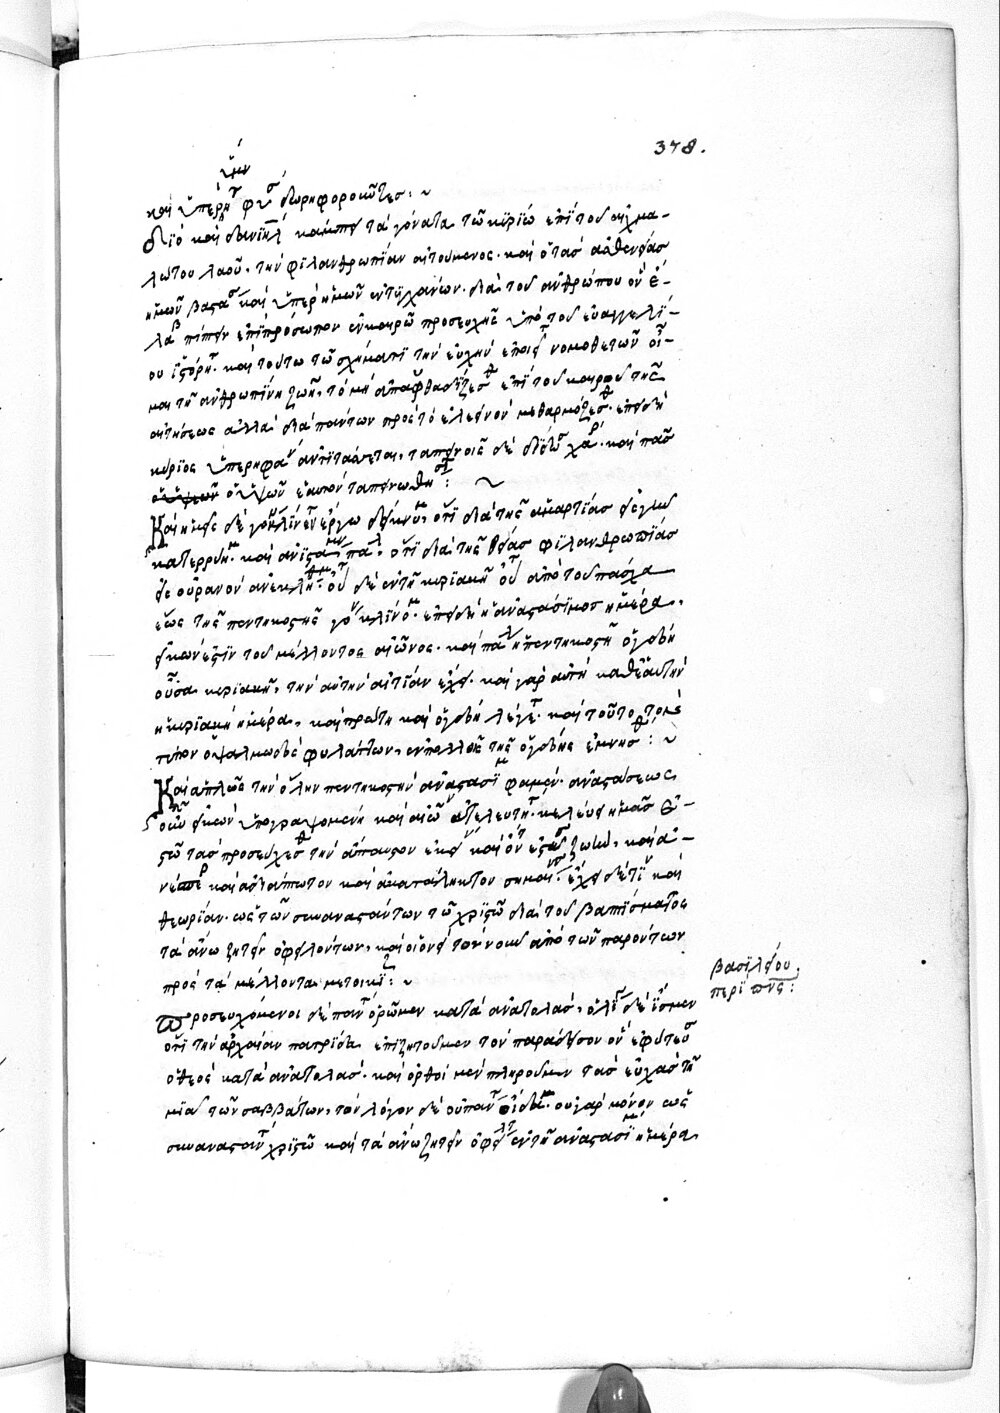 378.
ὑμῶν
καὶ ὑπὲρ
διὸ καὶ δανιὴλ κάμπτει τὰ γόνατα τῶ κυρίω ἐπὶ τοῦ αἰχμα-
λώτου λαοῦ, τὴν φιλανθρωπίαν αἰτούμενος· καὶ ὁ τὰς ἀσθενείας
ἡμῶν βαστάσας καὶ ὑπὲρ ἡμῶν ἐντυγχάνων. διὰ τοῦ ἀνθρώπου ὃν ἔ-
λαβε πίπτειν ἐπιπρόσωπον ἐν καιρῶ προσευχῆς ὑπὸ τοῦ εὐαγγελί-
ου ἱστόρηται· καὶ τούτω τῶ σχήματι τὴν εὐχὴν ἐποιεῖτο νομοθετῶν οἶ-
μαι τῆ ἀνθρωπίνη ζωῆ, τὸ μὴ ἀπαυθαδίζεσθαι ἐπὶ τοῦ καιροῦ τῆς
αἰτήσεως ἀλλὰ διὰ πάντων πρὸς τὸ ἐλεεινὸν μεθαρμόζεσθαι· ἐπειδὴ
κύριος ὑπερηφάνοις ἀντιτάσσεται, ταπεινοῖς δὲ δίδωσι χάριν· καὶ πᾶς
ὁ ὑψῶν ἑαυτὸν ταπεινωθήσεται:
Καὶ ἡμεῖς δὲ γονυκλινεῖν ἔργω δείκνυμεν, ὅτι διὰ τῆς ἁμαρτίας εἰς γῆν
κατερρύημεν· καὶ ἀνιστάμενοι πάλιν, ὅτι διὰ τῆς θείας φιλανθρωπίας
εἰς οὐρανὸν ἀνεκλήθημεν· οὔτε δὲ ἐν τῆ κυριακῆ οὔτε ἀπὸ τοῦ πάσχα
ἕως τῆς πεντηκοστῆς γόνυ κλίνομεν· ἐπειδὴ ἡ ἀναστάσιμος ἡμέρα,
εἰκών ἐστιν τοῦ μέλλοντος αἰῶνος· καὶ πάλιν ἡ πεντηκοστὴ ὀγδόη
οὖσα κυριακή, τὴν αὐτὴν αἰτίαν ἔχει· καὶ γὰρ αὐτὴ καθ' ἑαυτὴν
ἡ κυριακὴ ἡμέρα, καὶ πρώτη καὶ ὀγδόη λέγεται· καὶ τοῦτο τὸν
τύπον ὁ ψαλμωδὸς φυλάττων, ἐν πολλοῖς τῆς ὀγδόης ἐμνήσθη:
Καὶ ἁπλῶς τὴν ὅλην πεντηκοστὴν ἀναστάσιμον φαμέν· ἀναστάσεως
οὖν εἰκὼν ὑπογραφομένη καὶ αἰὼν ἀτελεύτητος κελεύει ἡμᾶς ἑ-
στῶτας προσεύχεσθαι τὴν ἄπαυστον ἐκεῖ καὶ ὄντως ἐστῶσαν ζωήν, καὶ ἀ-
νέσπερον καὶ ἀδιάπτωτον καὶ ἀκατάληκτον σημαίνοντες· ἔχει δέ τι καὶ
θεωρίαν· ὡς τῶν συναναστάντων τῶ χριστῶ διὰ τοῦ βαπτίσματος
τὰ ἄνω ζητεῖν ὀφειλόντων, καὶ οἱονεὶ τὸν νοῦν ἀπὸ τῶν παρόντων
πρὸς τὰ μέλλοντα μετοικίζειν:
βασιλείου
περὶ πνς:
Προσευχόμενοι δὲ πάντες ὁρῶμεν κατὰ ἀνατολάς, ὀλίγοι δὲ ἴσμεν
ὅτι τὴν ἀρχαίαν πατρίδα ἐπιζητοῦμεν τὸν παράδεισον ὃν ἐφύτευσεν
ὁ θεὸς κατὰ ἀνατολάς· καὶ ὀρθοὶ μὲν πληροῦμεν τὰς εὐχὰς τῆ
μιᾶ τῶν σαββάτων, τὸν λόγον δὲ οὐ πάντες οἴδαμεν· οὐ γὰρ μόνον ὡς
συναναστάντες χριστῶ καὶ τὰ ἄνω ζητεῖν ὀφείλοντες ἐν τῆ ἀναστασίμω ἡμέρα